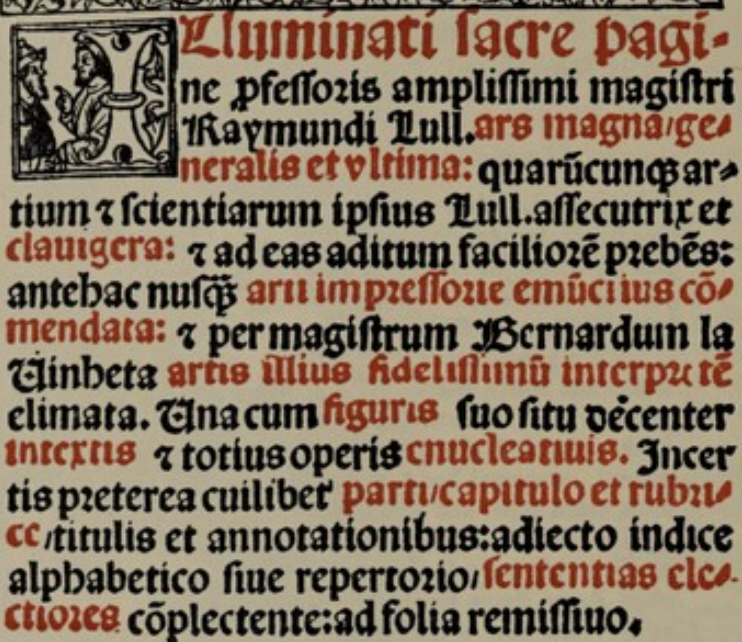 Illuminati sacre pagi-
ne ꝓfessoris amplissimi magistri
Raymundi Lull. ars magna/ge-
neralis et vltima: quarūcunqꝫ ar-
tium ⁊ scientiarum ipsius Lull. assecutrix et
clauigera: ⁊ ad eas aditum faciliorē prebēs:
antehac nusq̄ꝫ arti impressorie emūctius cō-
mendata: ⁊ per magistrum Bernardum la
Uinheta artis illius fidelissimū interpretē
elimata. Una cum figuris suo situ decenter
intextis ⁊ totius operis enucleatiuis. Incer
tis preterea cuilibet parti/capitulo et rubri-
ce/titulis et annotationibus: adiecto indice
alphabetico siue repertorio/sententias ele-
ctiores cōplectente: ad folia remissiuo.